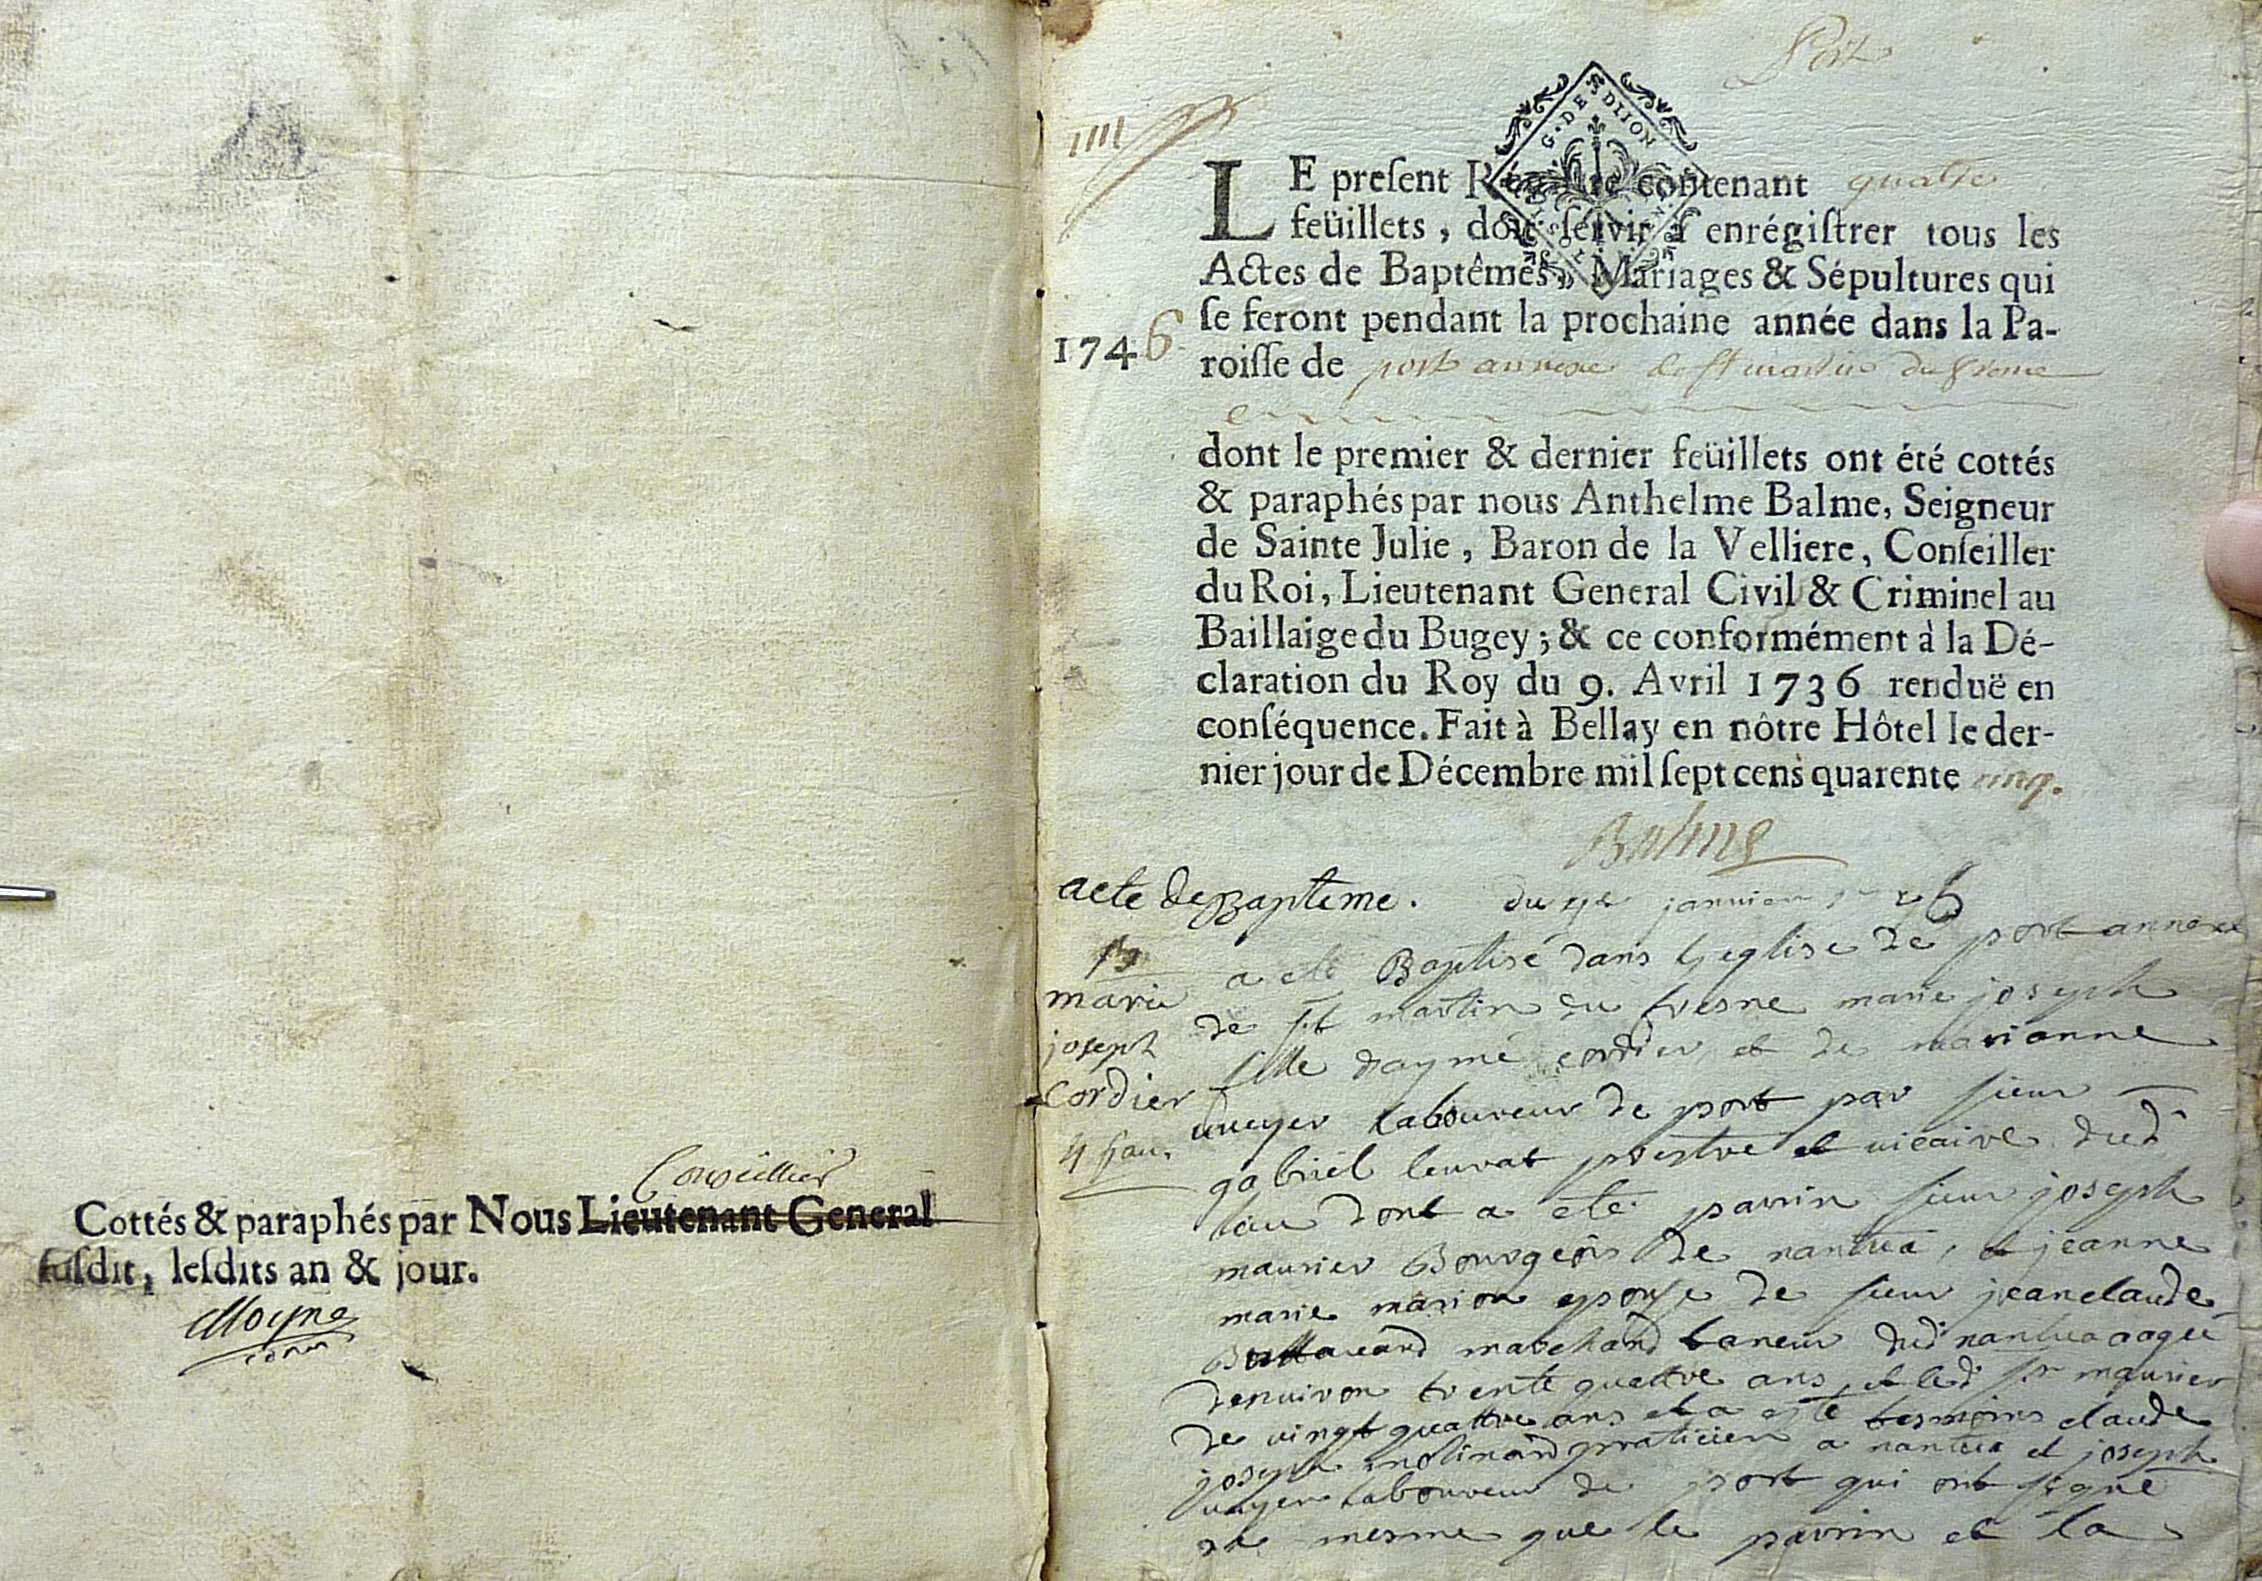 Conseiller
Cottés & paraphés par Nous Lieutenant General
susdit, lesdits an & jour.
Moyne
Port
IIII
G. DE DIJON
LE present Registre contenant quatre
feüillets, doit servir à enrégistrer tous les
Actes de Baptêmes, Mariages & Sépultures qui
se feront pendant la prochaine année dans la Pa-
1746.
roisse de port annexe de st martin du fresne
dont le premier & dernier feüillets ont été cottés
& paraphés par nous Anthelme Balme, Seigneur
de Sainte Julie, Baron de la Velliere, Conseiller
du Roi, Lieutenant General Civil & Criminel au
Baillaige du Bugey; & ce conformément à la Dé-
claration du Roy du 9. Avril 1736 renduë en
conséquence. Fait à Bellay en nôtre Hôtel le der-
nier jour de Décembre mil sept cens quarente cinq.
Balme
acte de Bapteme. du janvier
marie
joseph
Cordier
a eté Baptisé dans l'eglise de port annexe
de st martin du fresne marie joseph
fille d'aymé cordier et de marianne
uueyer laboureur de port par sieur
gabriel leurat prestre et vicaire dud
lieu dont a eté parrin sieur joseph
maurier Bourgeois de nantua, et jeanne
marie marion epouse de sieur jean claude
marchand taneur dud nantua aagée
d'enuiron trente quattre ans et led sr maurier
de vingt quattre ans et a esté tesmoins claude
joseph molinard praticien a nantua et joseph
uueyer laboureur de port qui ont signé
de mesme que le parrin et la